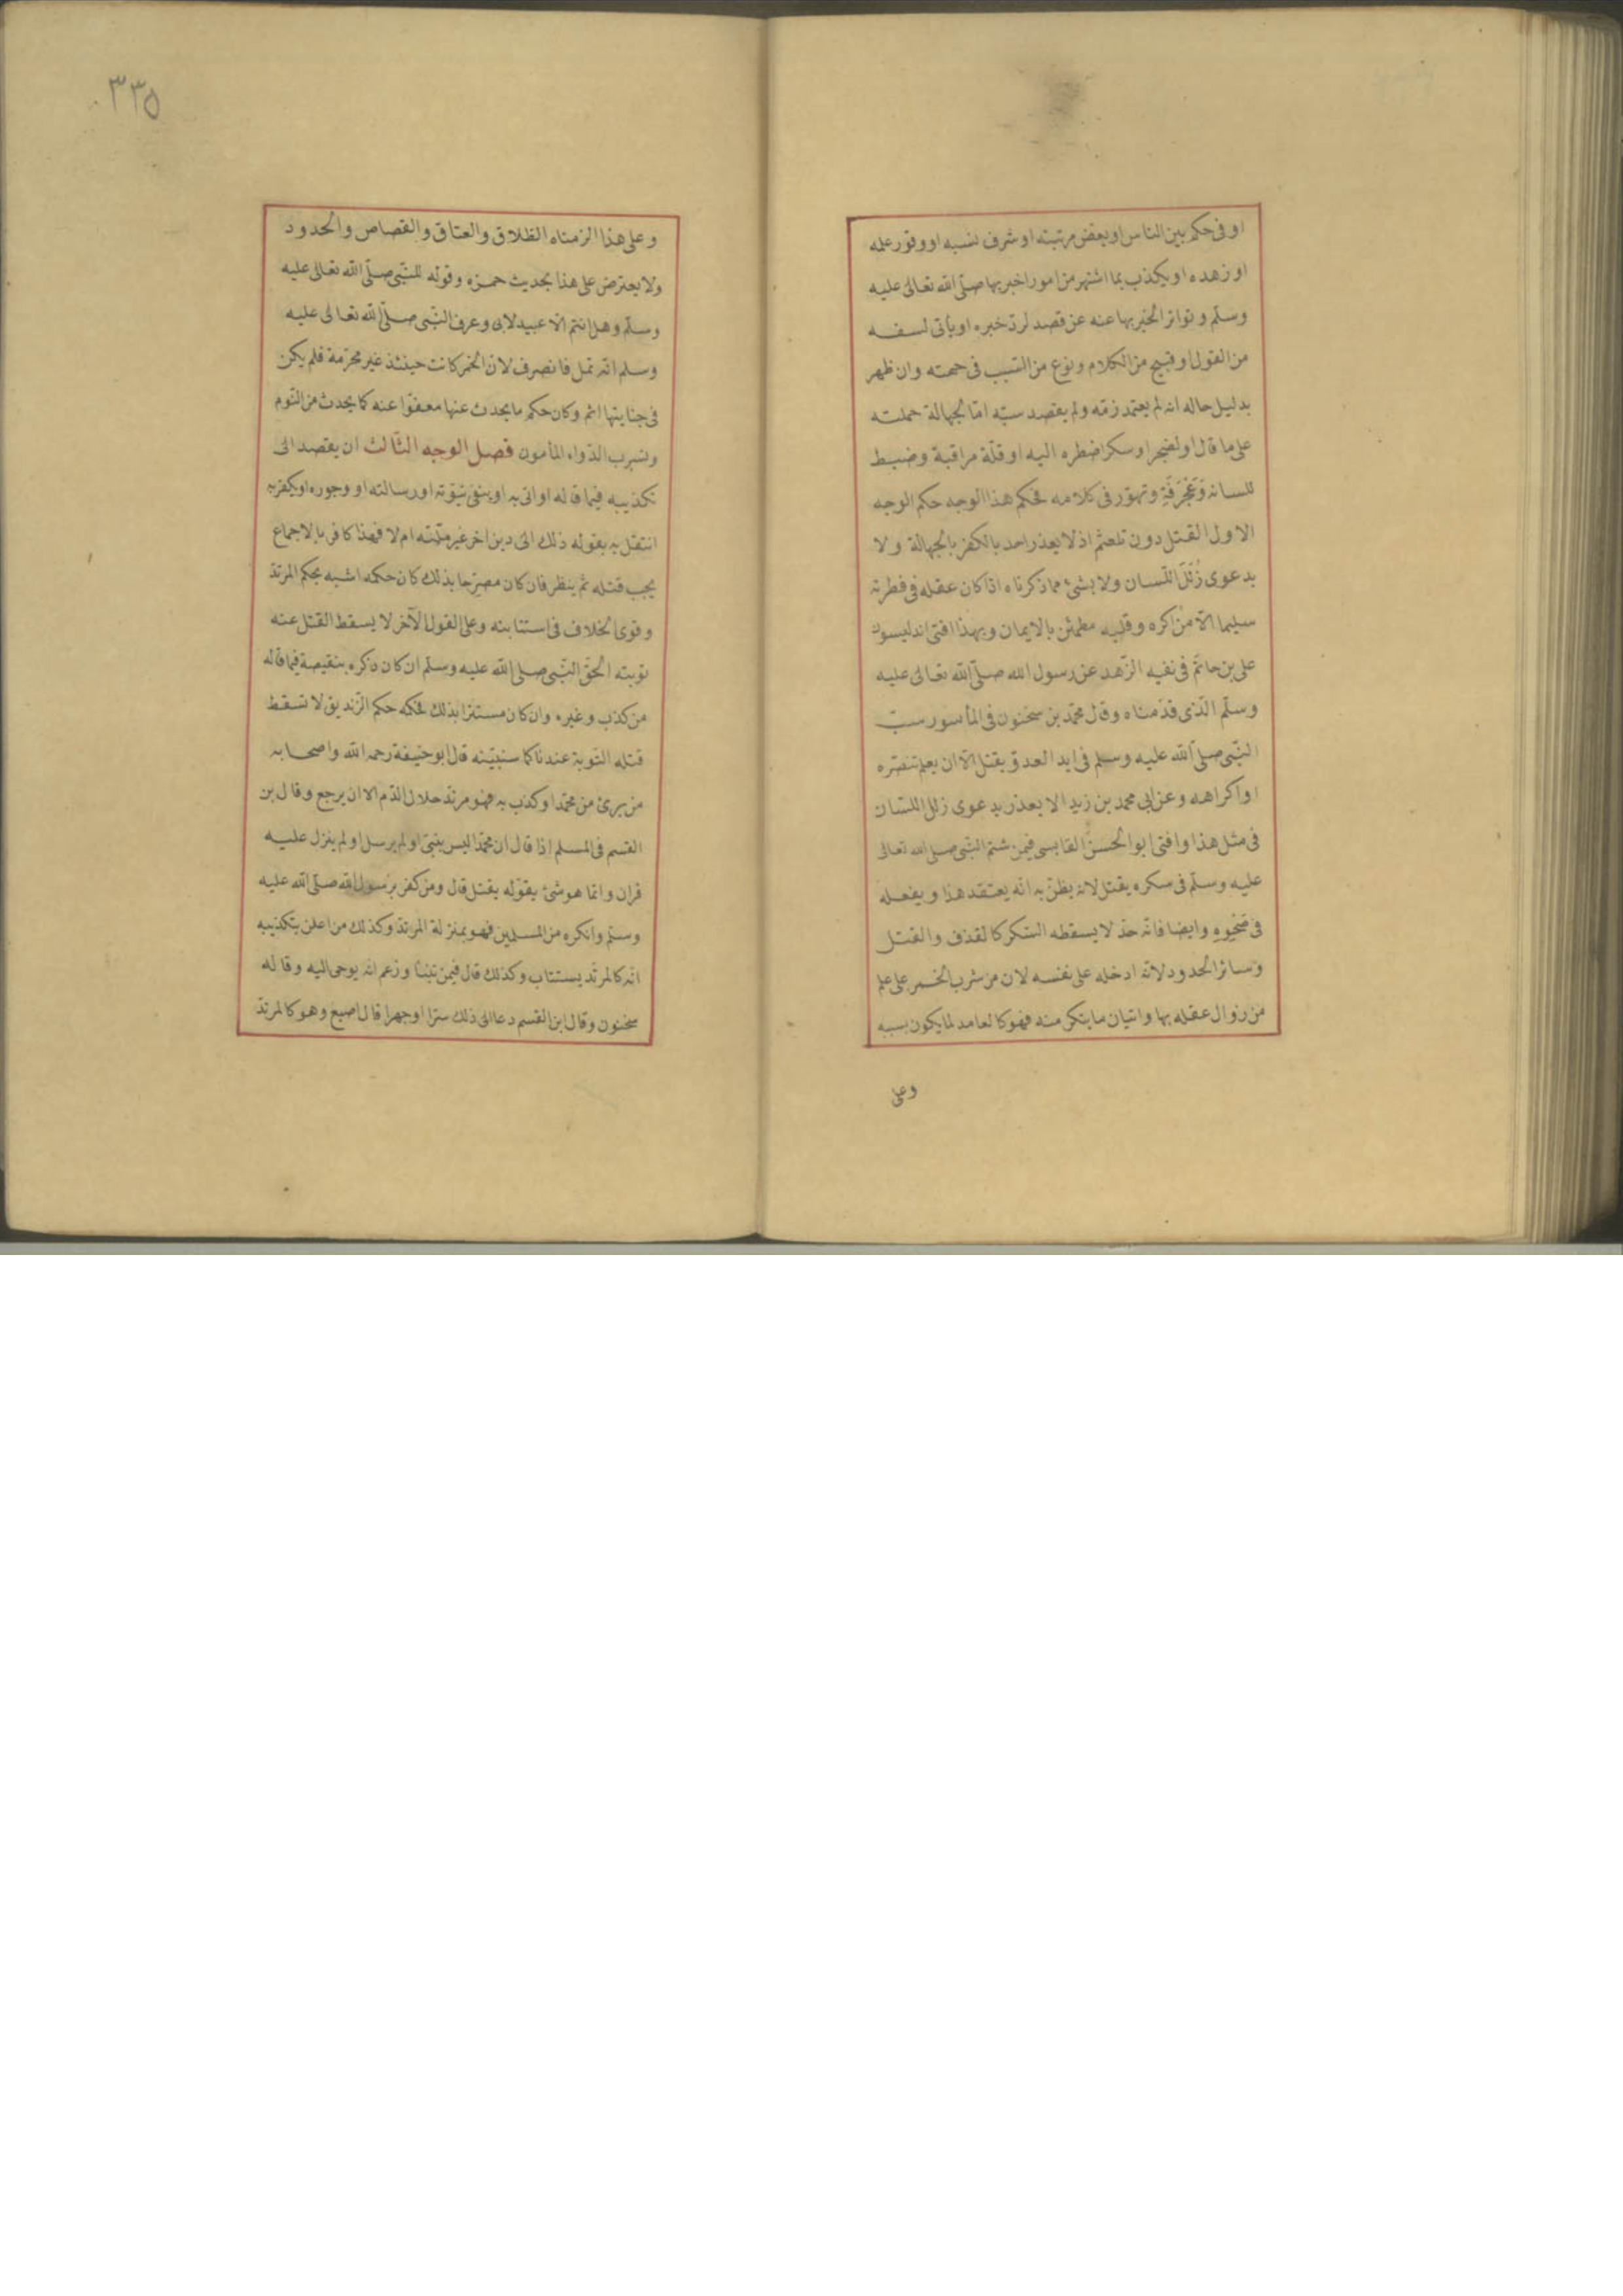 او فى حكم بين الناس او بعض مرتبته او شرف نسبه او وفور علمه
او زهده او يكذب بما اشتهر من امور اخبر بها صلّى الله تعالى عليه
وسلّم و تواتر الخبر بها عنه عن قصد لردّ خبره او يأتى لسفـه
من القول او قبيح من الكلام و نوع من السّبب فى حمته وان ظهر
بدليل حاله انه لم يعتمد زمّه ولم يقصد سبّه امّا لجهالة حملته
على ما قال او لضجر او سكر اضطره اليه او قلّة مراقبة وضبط
للسانه وَعَجْرَفَةٍ و تهوّر فى كلامه فحكم هذا الوجه حكم الوجه
الاول القتل دون تلعثم اذ لا يعذر احد بالكفر بالجهالة ولا
بدعوى زُلَلَ اللّسان ولا بشئ مما ذكرناه اذا كان عقله فى فطرته
سليما الّا من اكره وقلبه مطمئن بالايمان وبهذا افتى اندليسون
على بن حاتم فى نفيه الزّهد عن رسول الله صلّى الله تعالى عليه
وسلّم الذّى قدّمناه وقال محمّد بن سحنون فى المأسور سبّ
النّبى صلّى الله عليه وسلم فى ايد العدوّ يقتل الّا ان يعلم تنصّره
او اكراهه وعن ابى محمد بن زيد الا يعذر بدعوى زلل اللسّان
فى مثل هذا وافتى ابو الحسن القابسى فيمن شتم النّبى صلى الله تعالى
عليه وسلّم فى سكره يقتل لانه يظنّ به انّه يعتقد هذا ويفعله
فى صَحْوِهِ وايضا فانّه حدّ لا يسقطه السّكر كالقذف والقتل
وسائر الحدود لانّه ادخله على نفسه لان من شرب الخمر على علم
من زوال عقله بها واتيان ما ينكر منه فهو كالعامد لما يكون بسببه
وعلى
٣٣٥
وعلى هذا الزمناه الطّلاق والعتاق والقصاص والحدود
ولا يعترض على هذا بحديث حمزه وقوله للنّبى صلّى الله تعالى عليه
وسلّم وهل انتم الّا عبيد لابى وعرف النّبى صلّى الله تعالى عليه
وسلم انّه ثمل فانصرف لانّ الخمر كانت حينئذ غير محرّمة فلم يكن
فى جنايتها اثم وكان حكم ما يحدث عنها معفوّا عنه كما يحدث من النّوم
وشرب الدّواء المأمون فصل الوجه الثّالث ان يقصد الى
تكذيبه فيما قاله او اتى به او ينفى نبوّته او رسالته او وجوده او يكفر به
انتقل به بقوله ذلك الى دين اخر غير ملّته ام لا فهذا كافر بالاجماع
يجب قتله ثم ينظر فان كان مصرّحا بذلك كان حكمه اشبه بحكم المرتدّ
وقوى الخلاف فى استتابته وعلى القول الآخر لا يسقط القتل عنه
توبته الحقّ النّبى صلى الله عليه وسلّم ان كان ذكره بنقيصة فيما قاله
من كذب وغيره وان كان مستترا بذلك فحكمه حكم الزّنديق لا تسقط
قتله التوبة عندنا كما سنبيّنه قال ابو حنيفة رحمه الله واصحابه
من برئ من محمّد او كذب به فهو مرتدّ حلال الدّم الا ان يرجع وقال بن
القسم فى المسلم اذا قال ان محمّدا ليس بنبىّ او لم يرسل او لم ينزل عليه
قران وانّما هو شئ يقوّله يقتل قال ومن كفر برسول الله صلّى الله عليه
وسلّم وانكره من المسلمين فهو بمنزلة المرتدّ وكذلك من اعلن بتكذيبه
انّه كالمرتّد يستتاب وكذلك قال فيمن تنبّأ وزعم انّه يوحى اليه وقاله
سحنون وقال ابن القسم دعا الى ذلك سرّا او جهرا قال اصبغ وهو كالمرتدّ